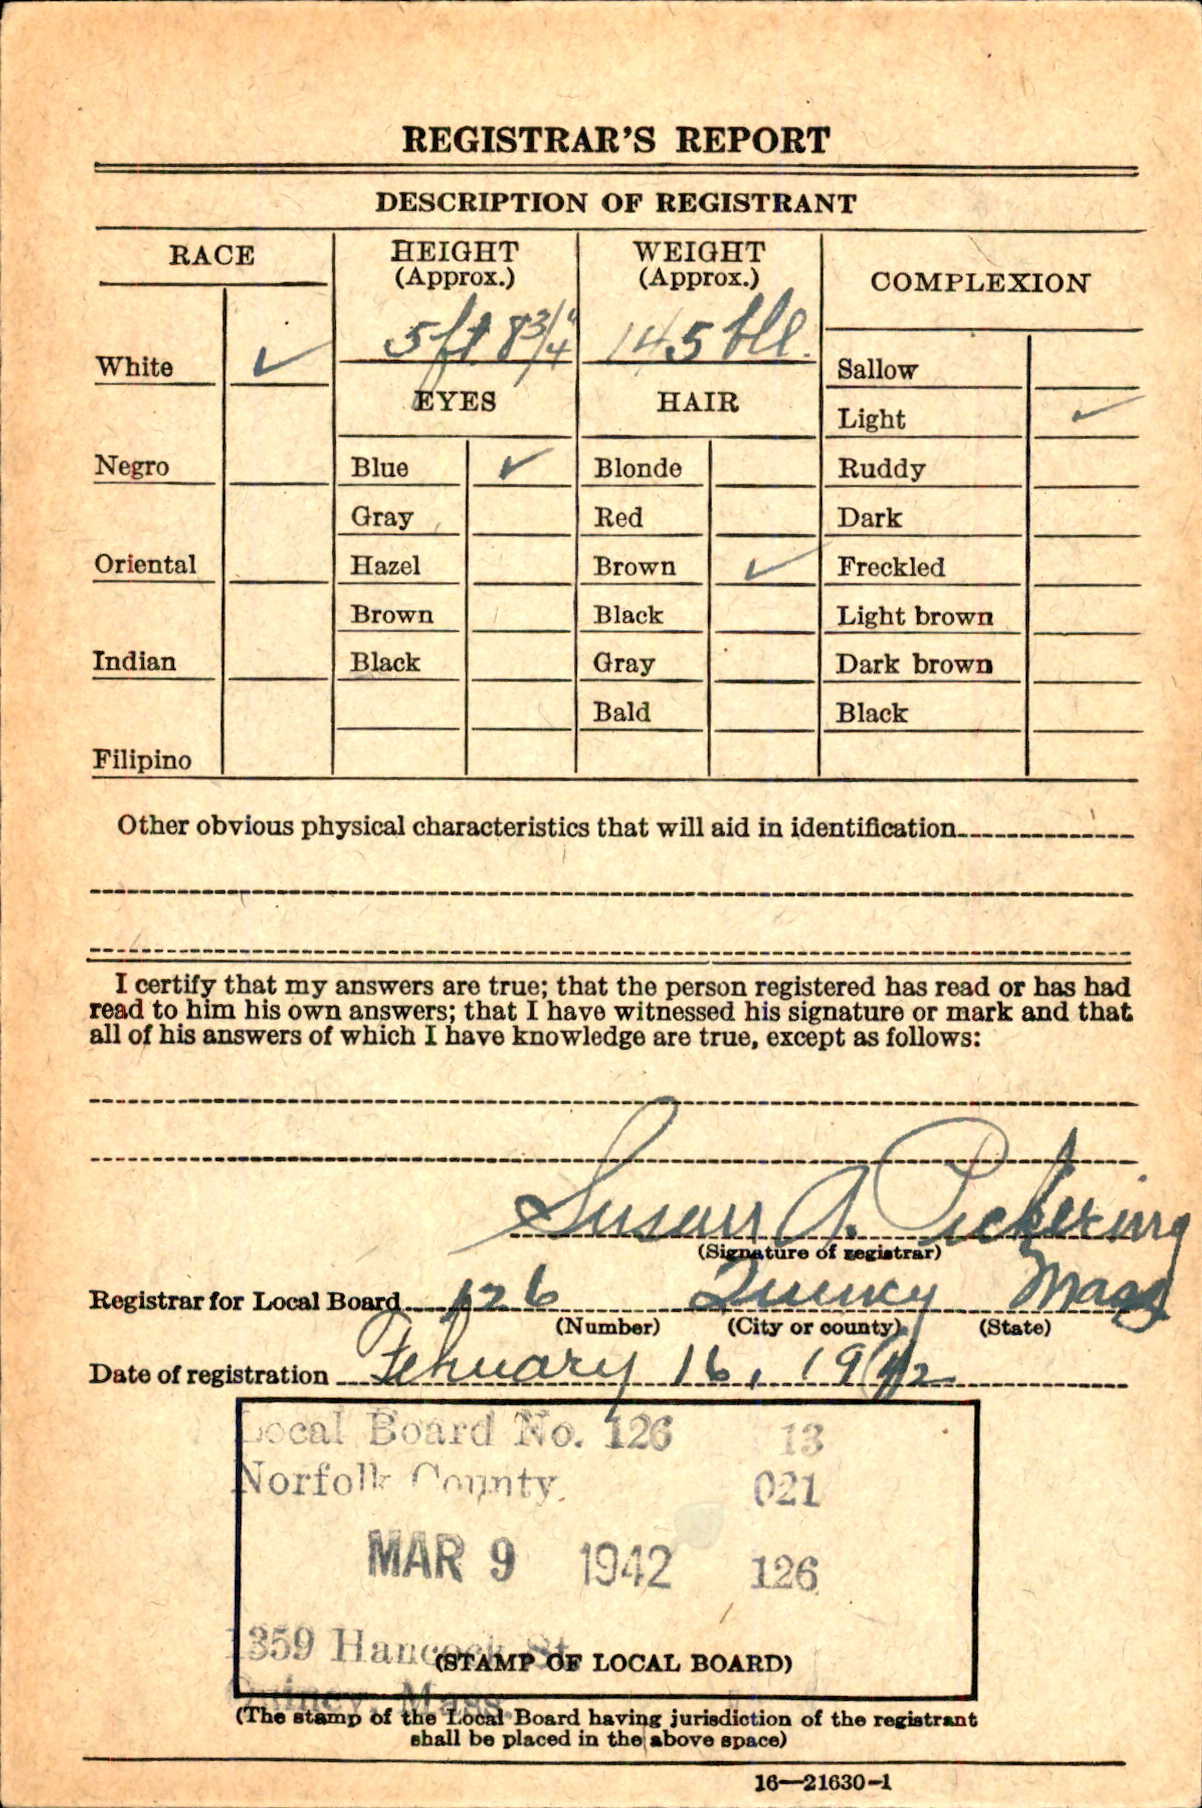 REGISTRAR'S REPORT
DESCRIPTION OF REGISTRANT
RACE
HEIGHT
(Approx.)
WEIGHT
(Approx.)
COMPLEXION
5 ft 8 3/4"
145 lbs.
White ✓
EYES
HAIR
Sallow
Light ✓
Negro
Blue ✓
Blonde
Ruddy
Gray
Red
Dark
Oriental
Hazel
Brown ✓
Freckled
Brown
Black
Light brown
Indian
Black
Gray
Dark brown
Bald
Black
Filipino
Other obvious physical characteristics that will aid in identification
I certify that my answers are true; that the person registered has read or has had
read to him his own answers; that I have witnessed his signature or mark and that
all of his answers of which I have knowledge are true, except as follows:
Susan A. Pickering
(Signature of registrar)
Registrar for Local Board 126 Quincy Mass
(Number) (City or county) (State)
Date of registration February 16, 1942
Local Board No. 126 13
Norfolk County. 021
MAR 9 1942 126
1359 Hancock St.
(STAMP OF LOCAL BOARD)
Quincy, Mass.
(The stamp of the Local Board having jurisdiction of the registrant
shall be placed in the above space)
16—21630-1